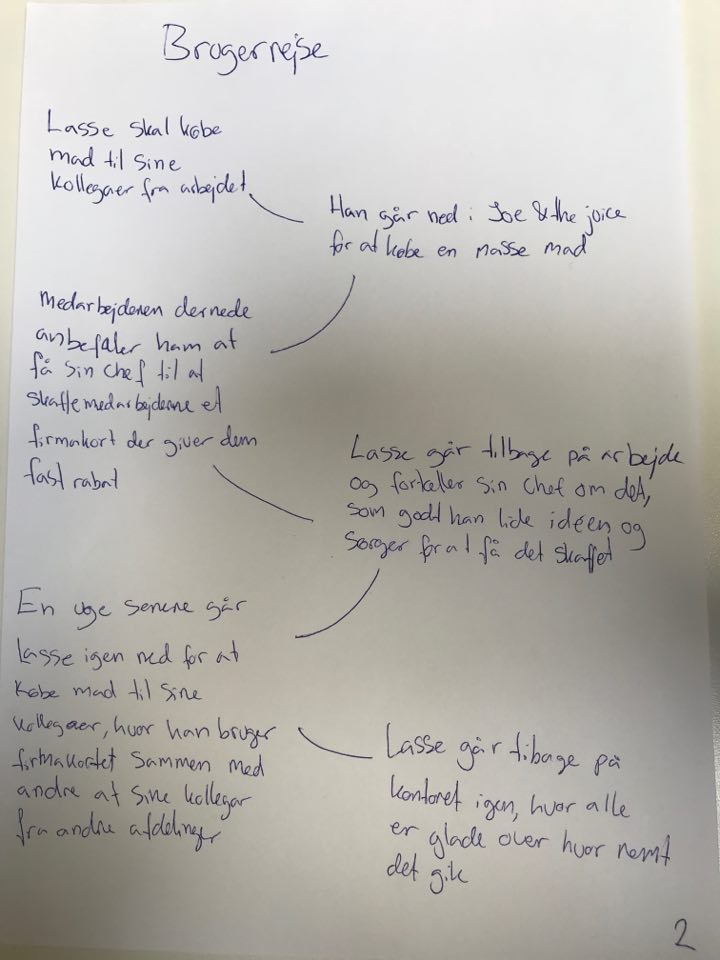 Brugerrejse
Lasse skal købe
mad til sine
kollegaer fra arbejdet
Han går ned i Joe & the joice
for at købe en masse mad
Medarbejderen dernede
anbefaler ham at
få sin chef til at
skaffe medarbejderne et
firmakort der giver dem
fast rabat
Lasse går tilbage på arbejde
og fortæller sin chef om det,
som godt han lide idéen og
sørger for at få det skaffet
En uge senere går
Lasse igen ned for at
købe mad til sine
kollegaer, hvor han bruger
firmakortet sammen med
andre af sine kollegar
fra andre afdelinger
Lasse går tibage på
kontoret igen, hvor alle
er glade over hvor nemt
det gik
2